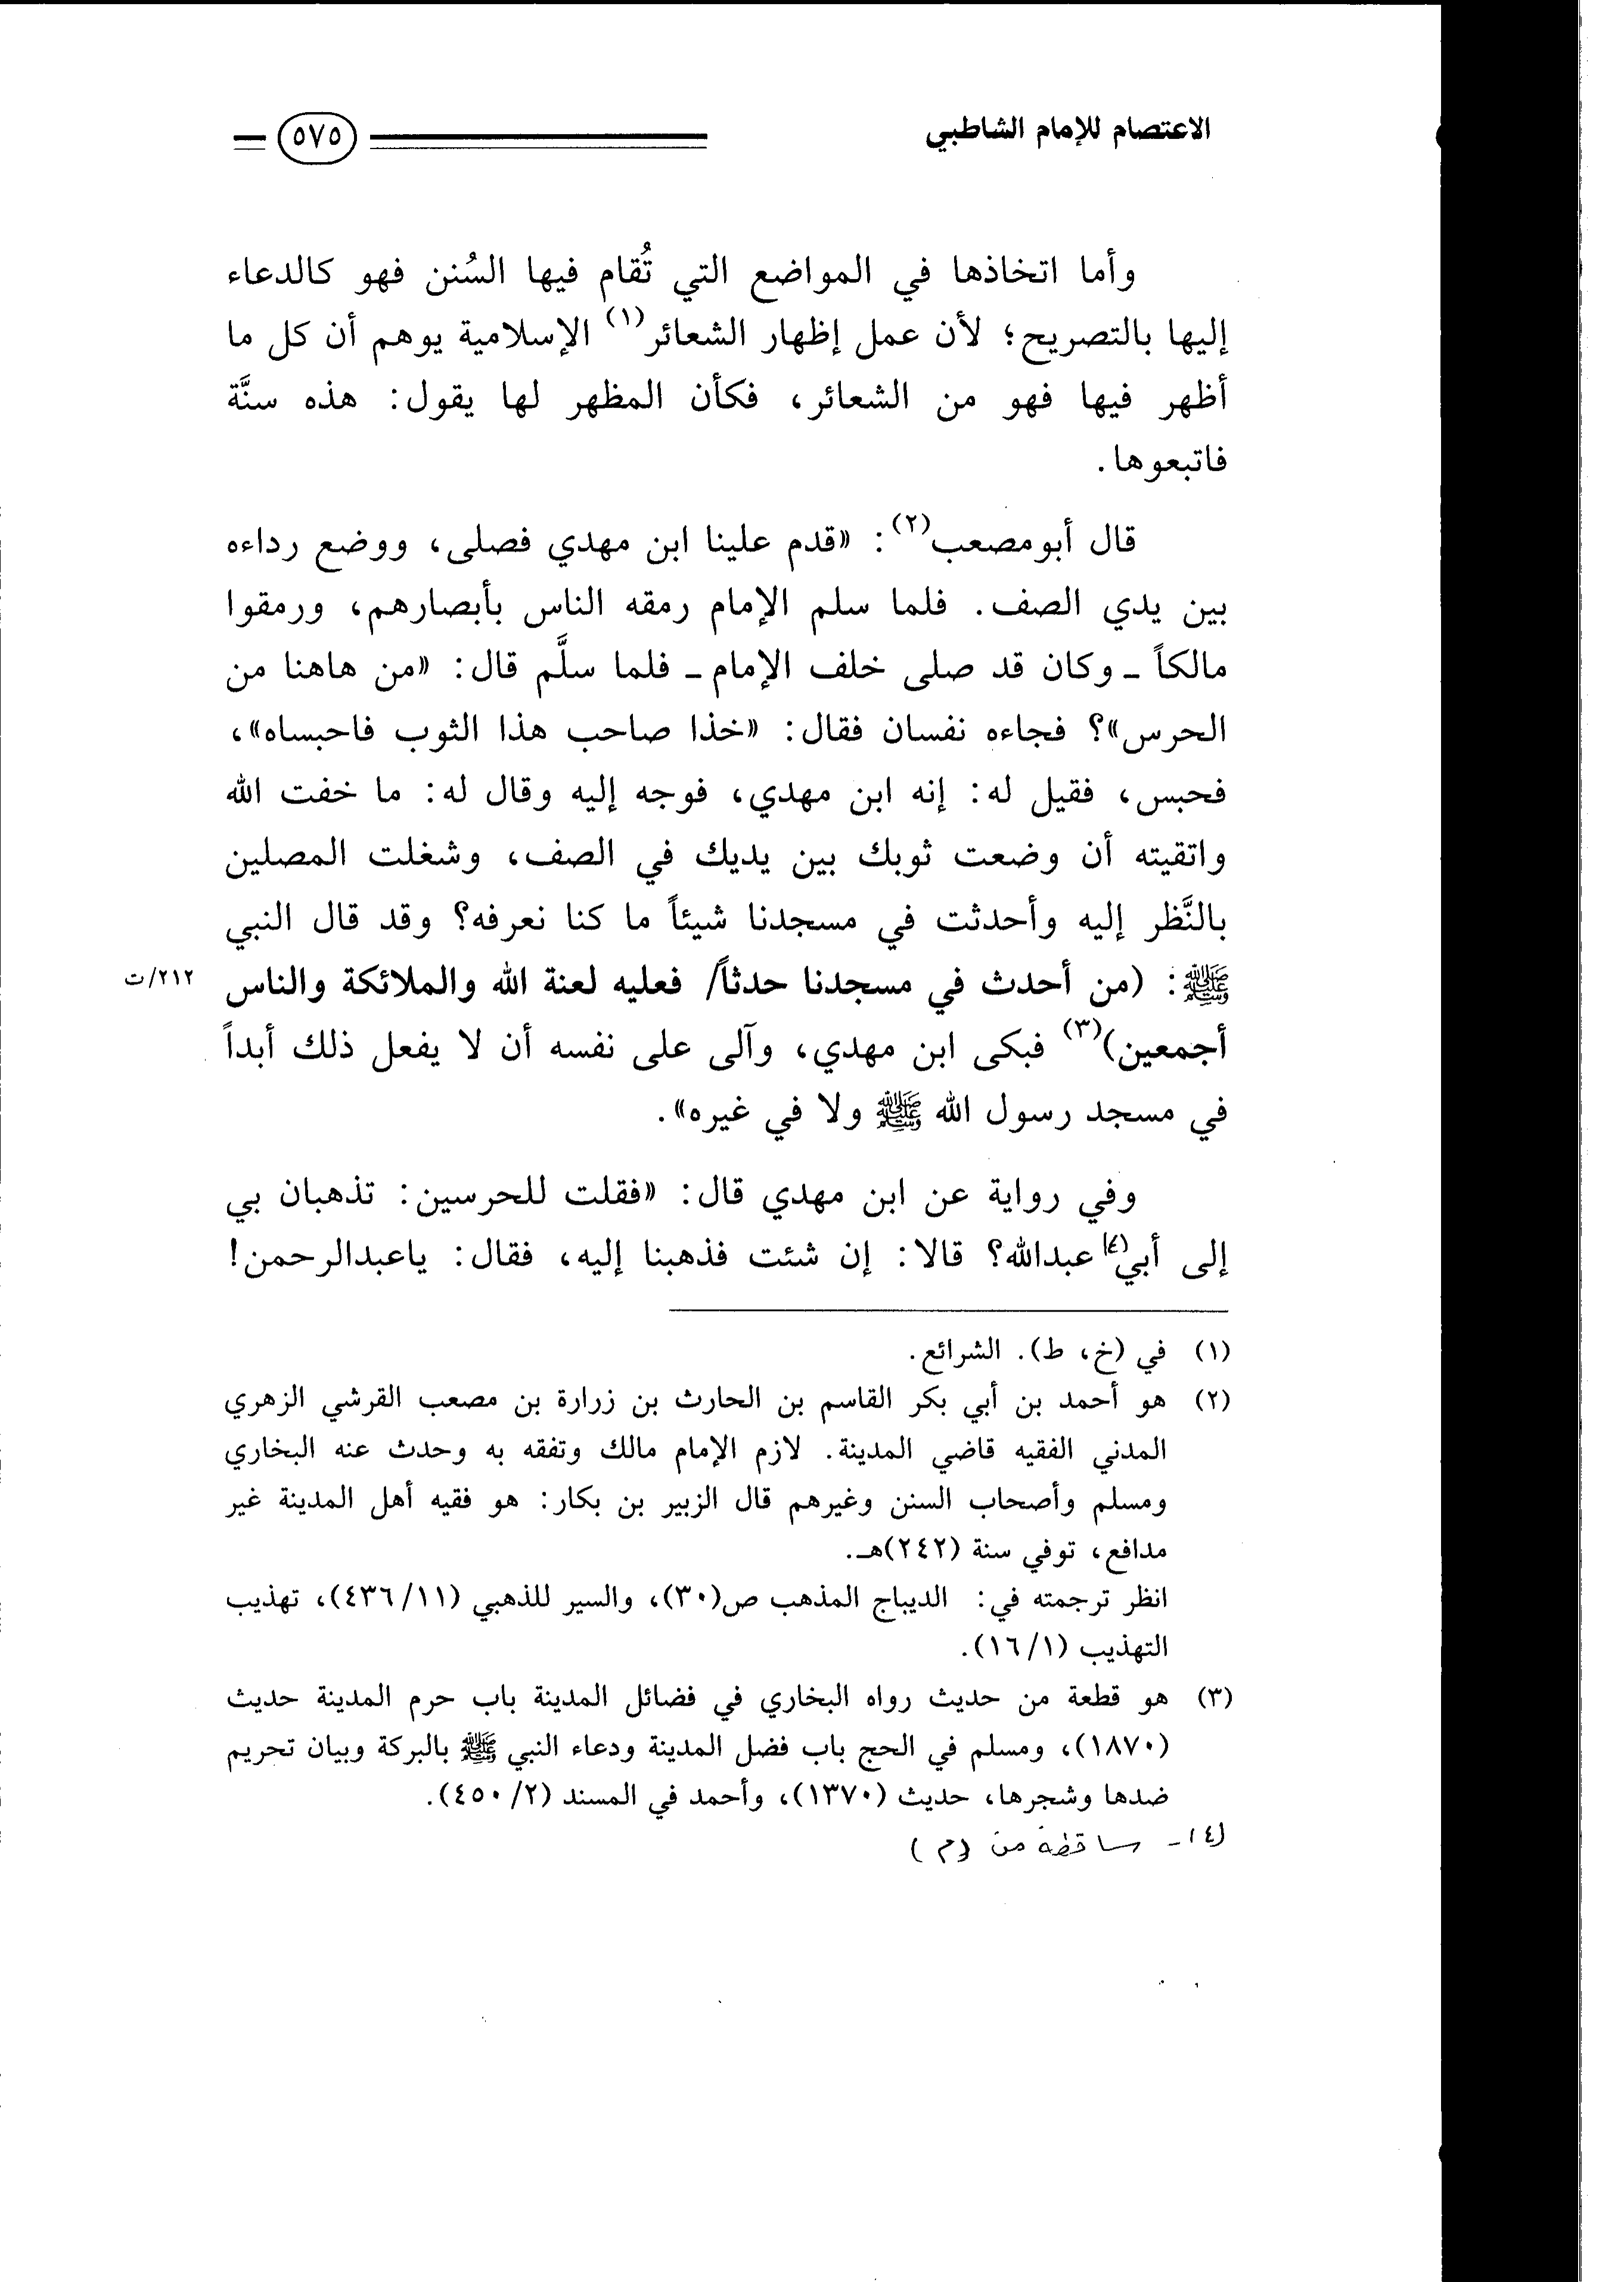 الاعتصام للإمام الشاطبي
٥٧٥
وأما اتخاذها في المواضع التي تُقام فيها السُنن فهو كالدعاء
إليها بالتصريح؛ لأن عمل إظهار الشعائر(١) الإسلامية يوهم أن كل ما
أظهر فيها فهو من الشعائر، فكأن المظهر لها يقول: هذه سنَّة
فاتبعوها.
قال أبومصعب(٢): «قدم علينا ابن مهدي فصلى، ووضع رداءه
بين يدي الصف. فلما سلم الإمام رمقه الناس بأبصارهم، ورمقوا
مالكاً ـ وكان قد صلى خلف الإمام ـ فلما سلَّم قال: «من هاهنا من
الحرس»؟ فجاءه نفسان فقال: «خذا صاحب هذا الثوب فاحبساه»،
فحبس، فقيل له: إنه ابن مهدي، فوجه إليه وقال له: ما خفت الله
واتقيته أن وضعت ثوبك بين يديك في الصف، وشغلت المصلين
بالنَّظر إليه وأحدثت في مسجدنا شيئاً ما كنا نعرفه؟ وقد قال النبي
ﷺ: (من أحدث في مسجدنا حدثاً/ فعليه لعنة الله والملائكة والناس
٢١٢/ت
أجمعين)(٣) فبكى ابن مهدي، وآلى على نفسه أن لا يفعل ذلك أبداً
في مسجد رسول الله ﷺ ولا في غيره».
وفي رواية عن ابن مهدي قال: «فقلت للحرسين: تذهبان بي
إلى أبي(٤) عبدالله؟ قالا: إن شئت فذهبنا إليه، فقال: ياعبدالرحمن!
(١) في (خ، ط). الشرائع.
(٢) هو أحمد بن أبي بكر القاسم بن الحارث بن زرارة بن مصعب القرشي الزهري
المدني الفقيه قاضي المدينة. لازم الإمام مالك وتفقه به وحدث عنه البخاري
ومسلم وأصحاب السنن وغيرهم قال الزبير بن بكار: هو فقيه أهل المدينة غير
مدافع، توفي سنة (٢٤٢)هـ.
انظر ترجمته في: الديباج المذهب ص(٣٠)، والسير للذهبي (٤٣٦/١١)، تهذيب
التهذيب (١٦/١).
(٣) هو قطعة من حديث رواه البخاري في فضائل المدينة باب حرم المدينة حديث
(١٨٧٠)، ومسلم في الحج باب فضل المدينة ودعاء النبي ﷺ بالبركة وبيان تحريم
ضدها وشجرها، حديث (١٣٧٠)، وأحمد في المسند (٤٥٠/٢).
(٤)ـ ساقطة من (م)